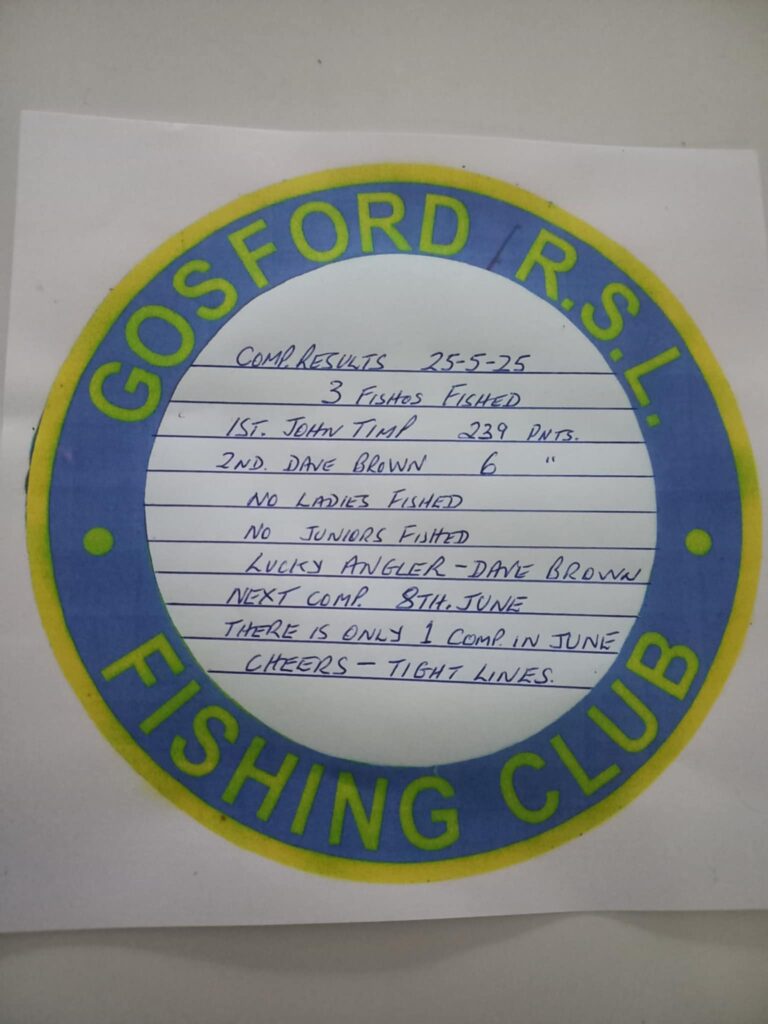 GOSFORD R.S.L.
COMP. RESULTS 25-5-25
3 FISHOS FISHED
1ST. JOHN TIMP 239 PNTS.
2ND. DAVE BROWN 6 "
NO LADIES FISHED
NO JUNIORS FISHED
LUCKY ANGLER - DAVE BROWN
NEXT COMP. 8TH. JUNE
THERE IS ONLY 1 COMP. IN JUNE
CHEERS - TIGHT LINES.
FISHING CLUB